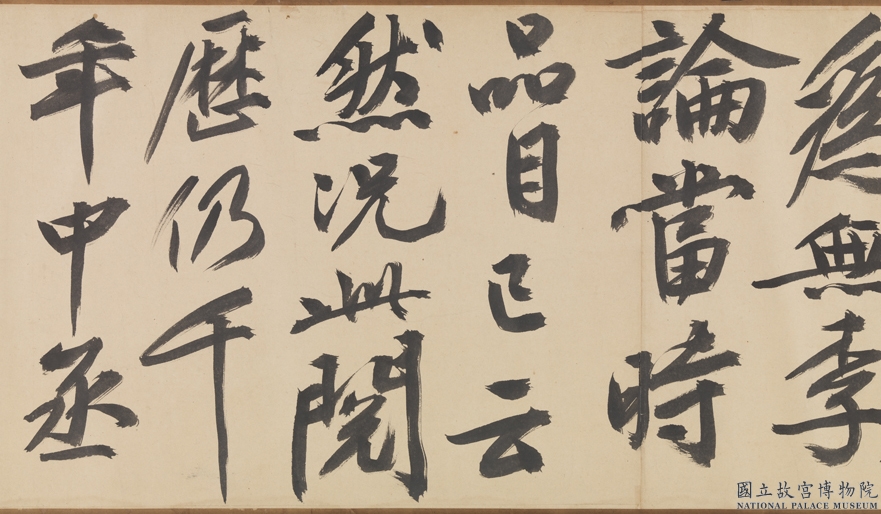 無李
論當時
品目已云
然況此閱
歷仍千
年中丞
國立故宮博物院
NATIONAL PALACE MUSEUM